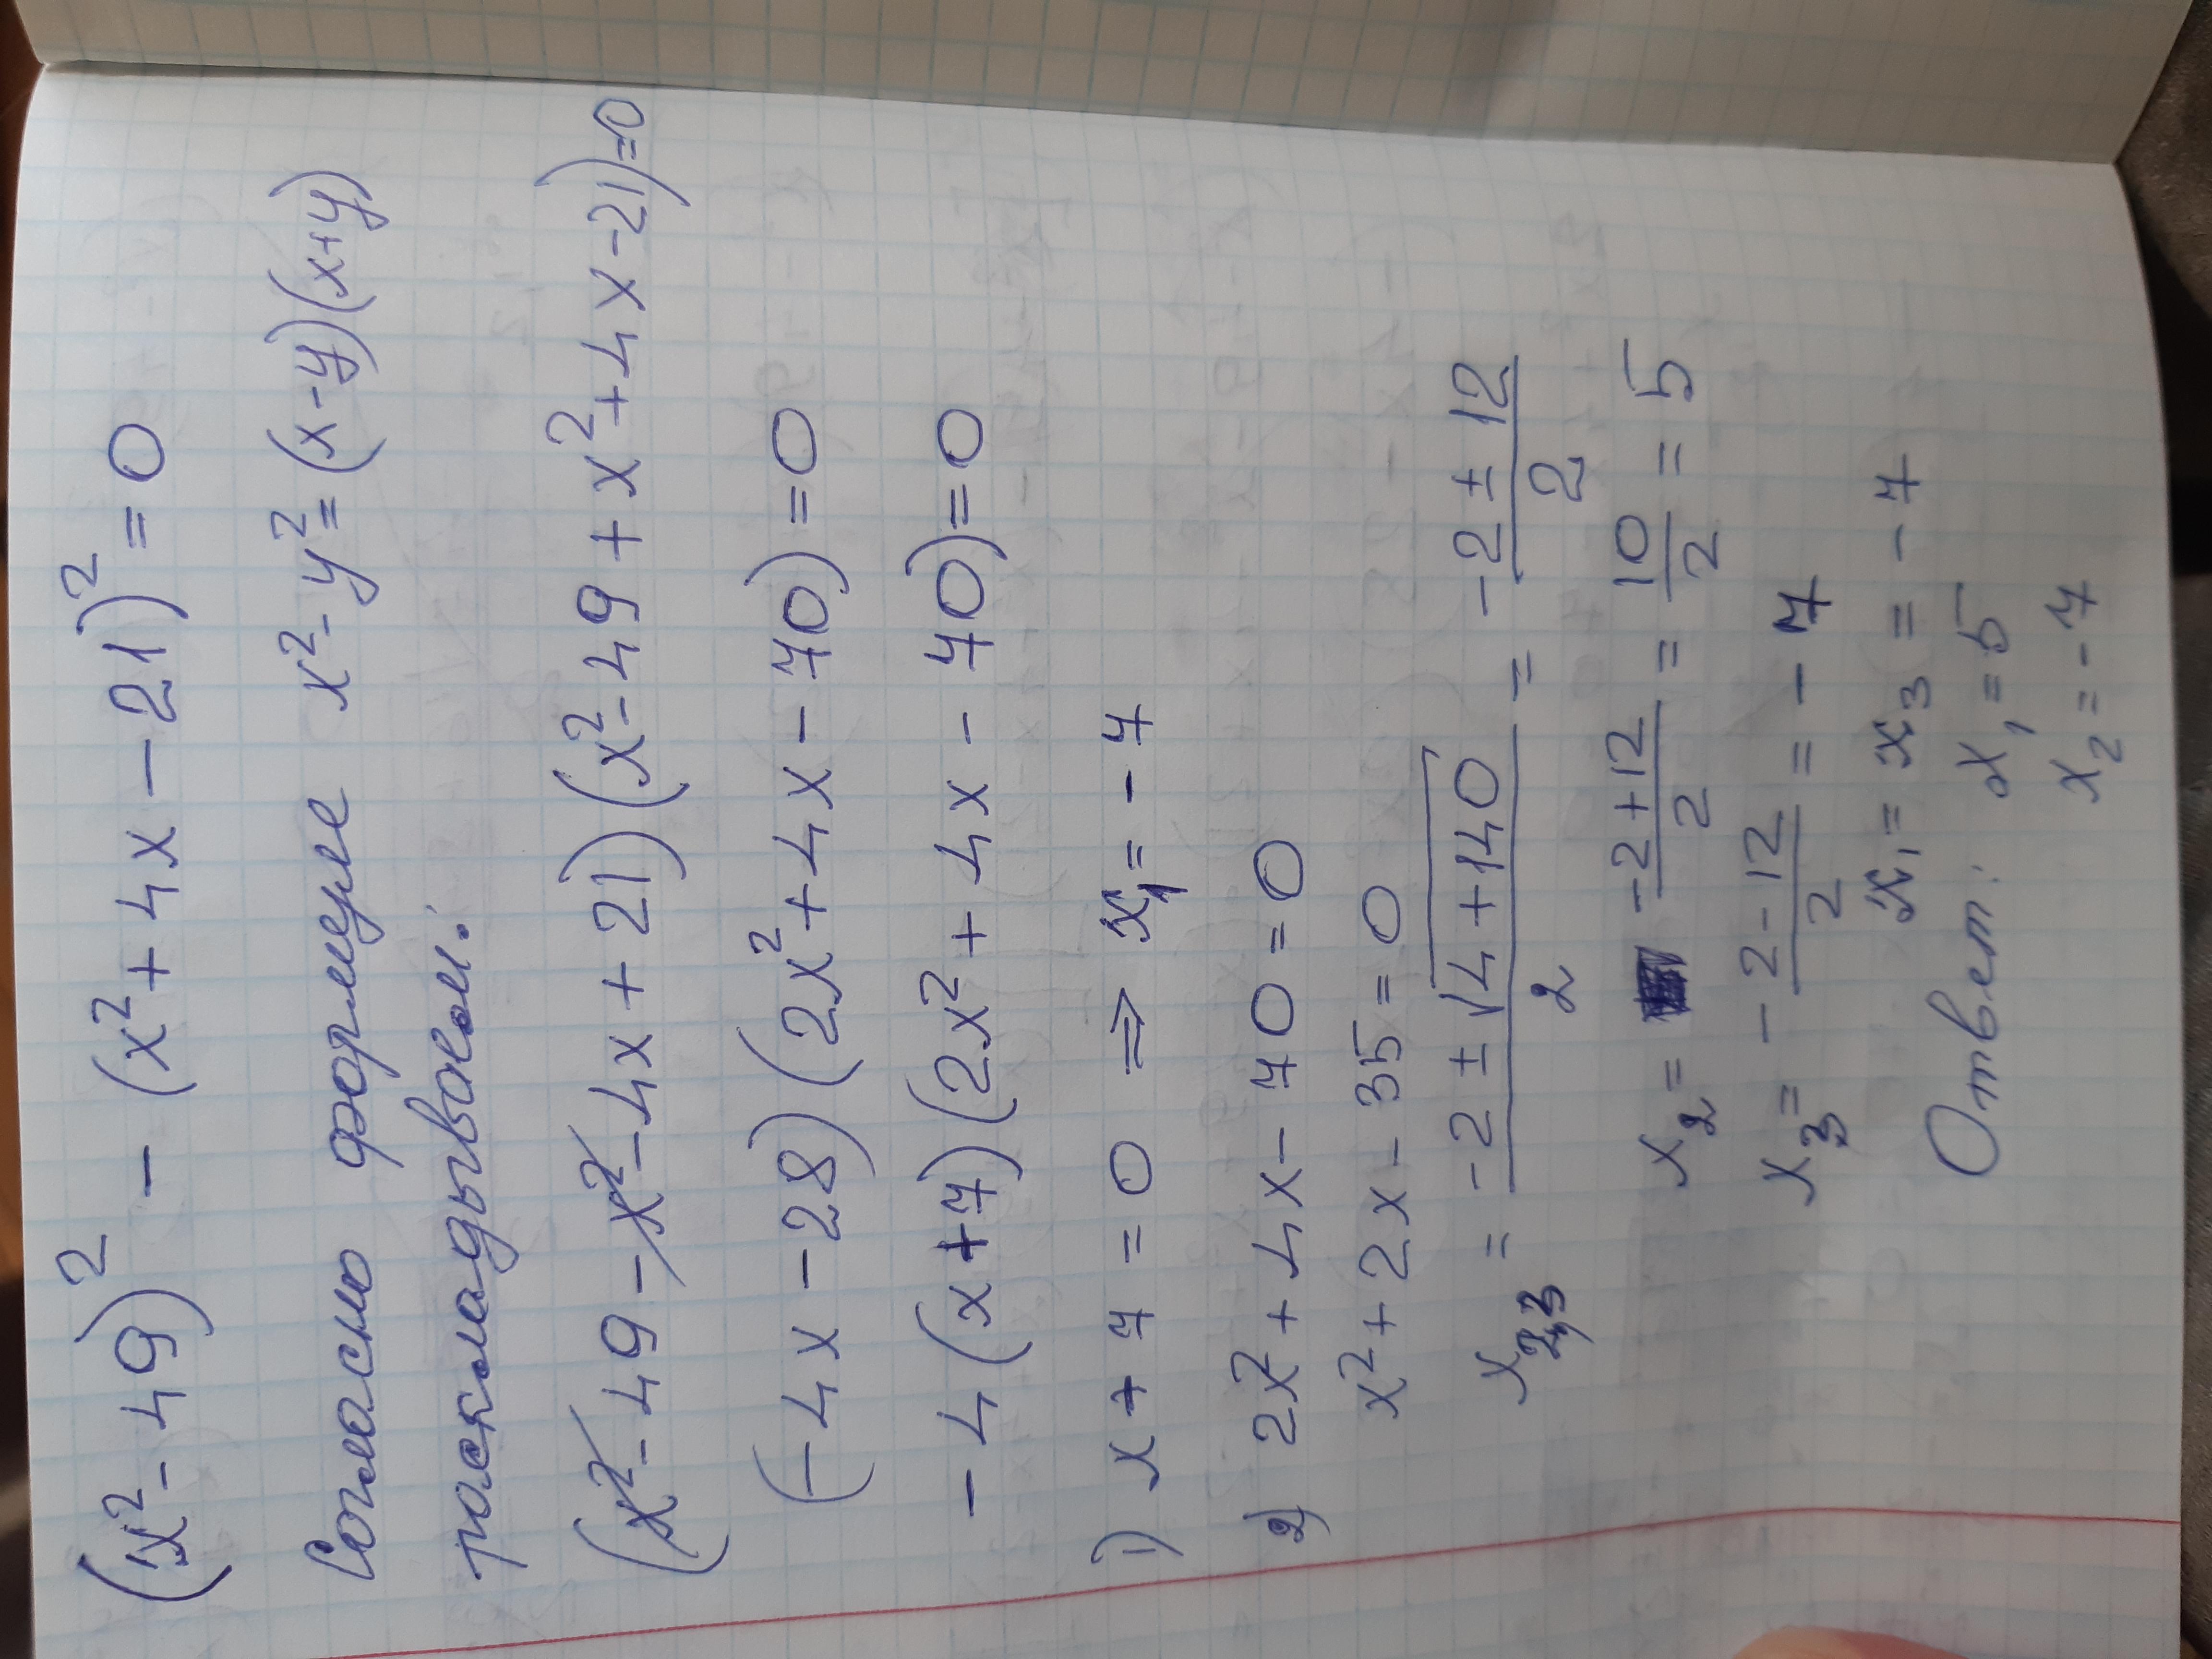 (x² - 49)² - (x² + 4x - 21)² = 0
Согласно формуле x² - y² = (x - y)(x + y)
раскладываем:
(x² - 49 - x² - 4x + 21)(x² - 49 + x² + 4x - 21) = 0
(-4x - 28)(2x² + 4x - 70) = 0
-4(x + 7)(2x² + 4x - 70) = 0
1) x + 7 = 0 ⇒ x₁ = -7
2) 2x² + 4x - 70 = 0
x² + 2x - 35 = 0
x₂,₃ = (-2 ± √(4 + 140))/2 = (-2 ± 12)/2
x₂ = (-2 + 12)/2 = 10/2 = 5
x₃ = -(2 - 12)/2 = -7
x₁ = x₃ = -7
Ответ: x₁ = 5
x₂ = -7